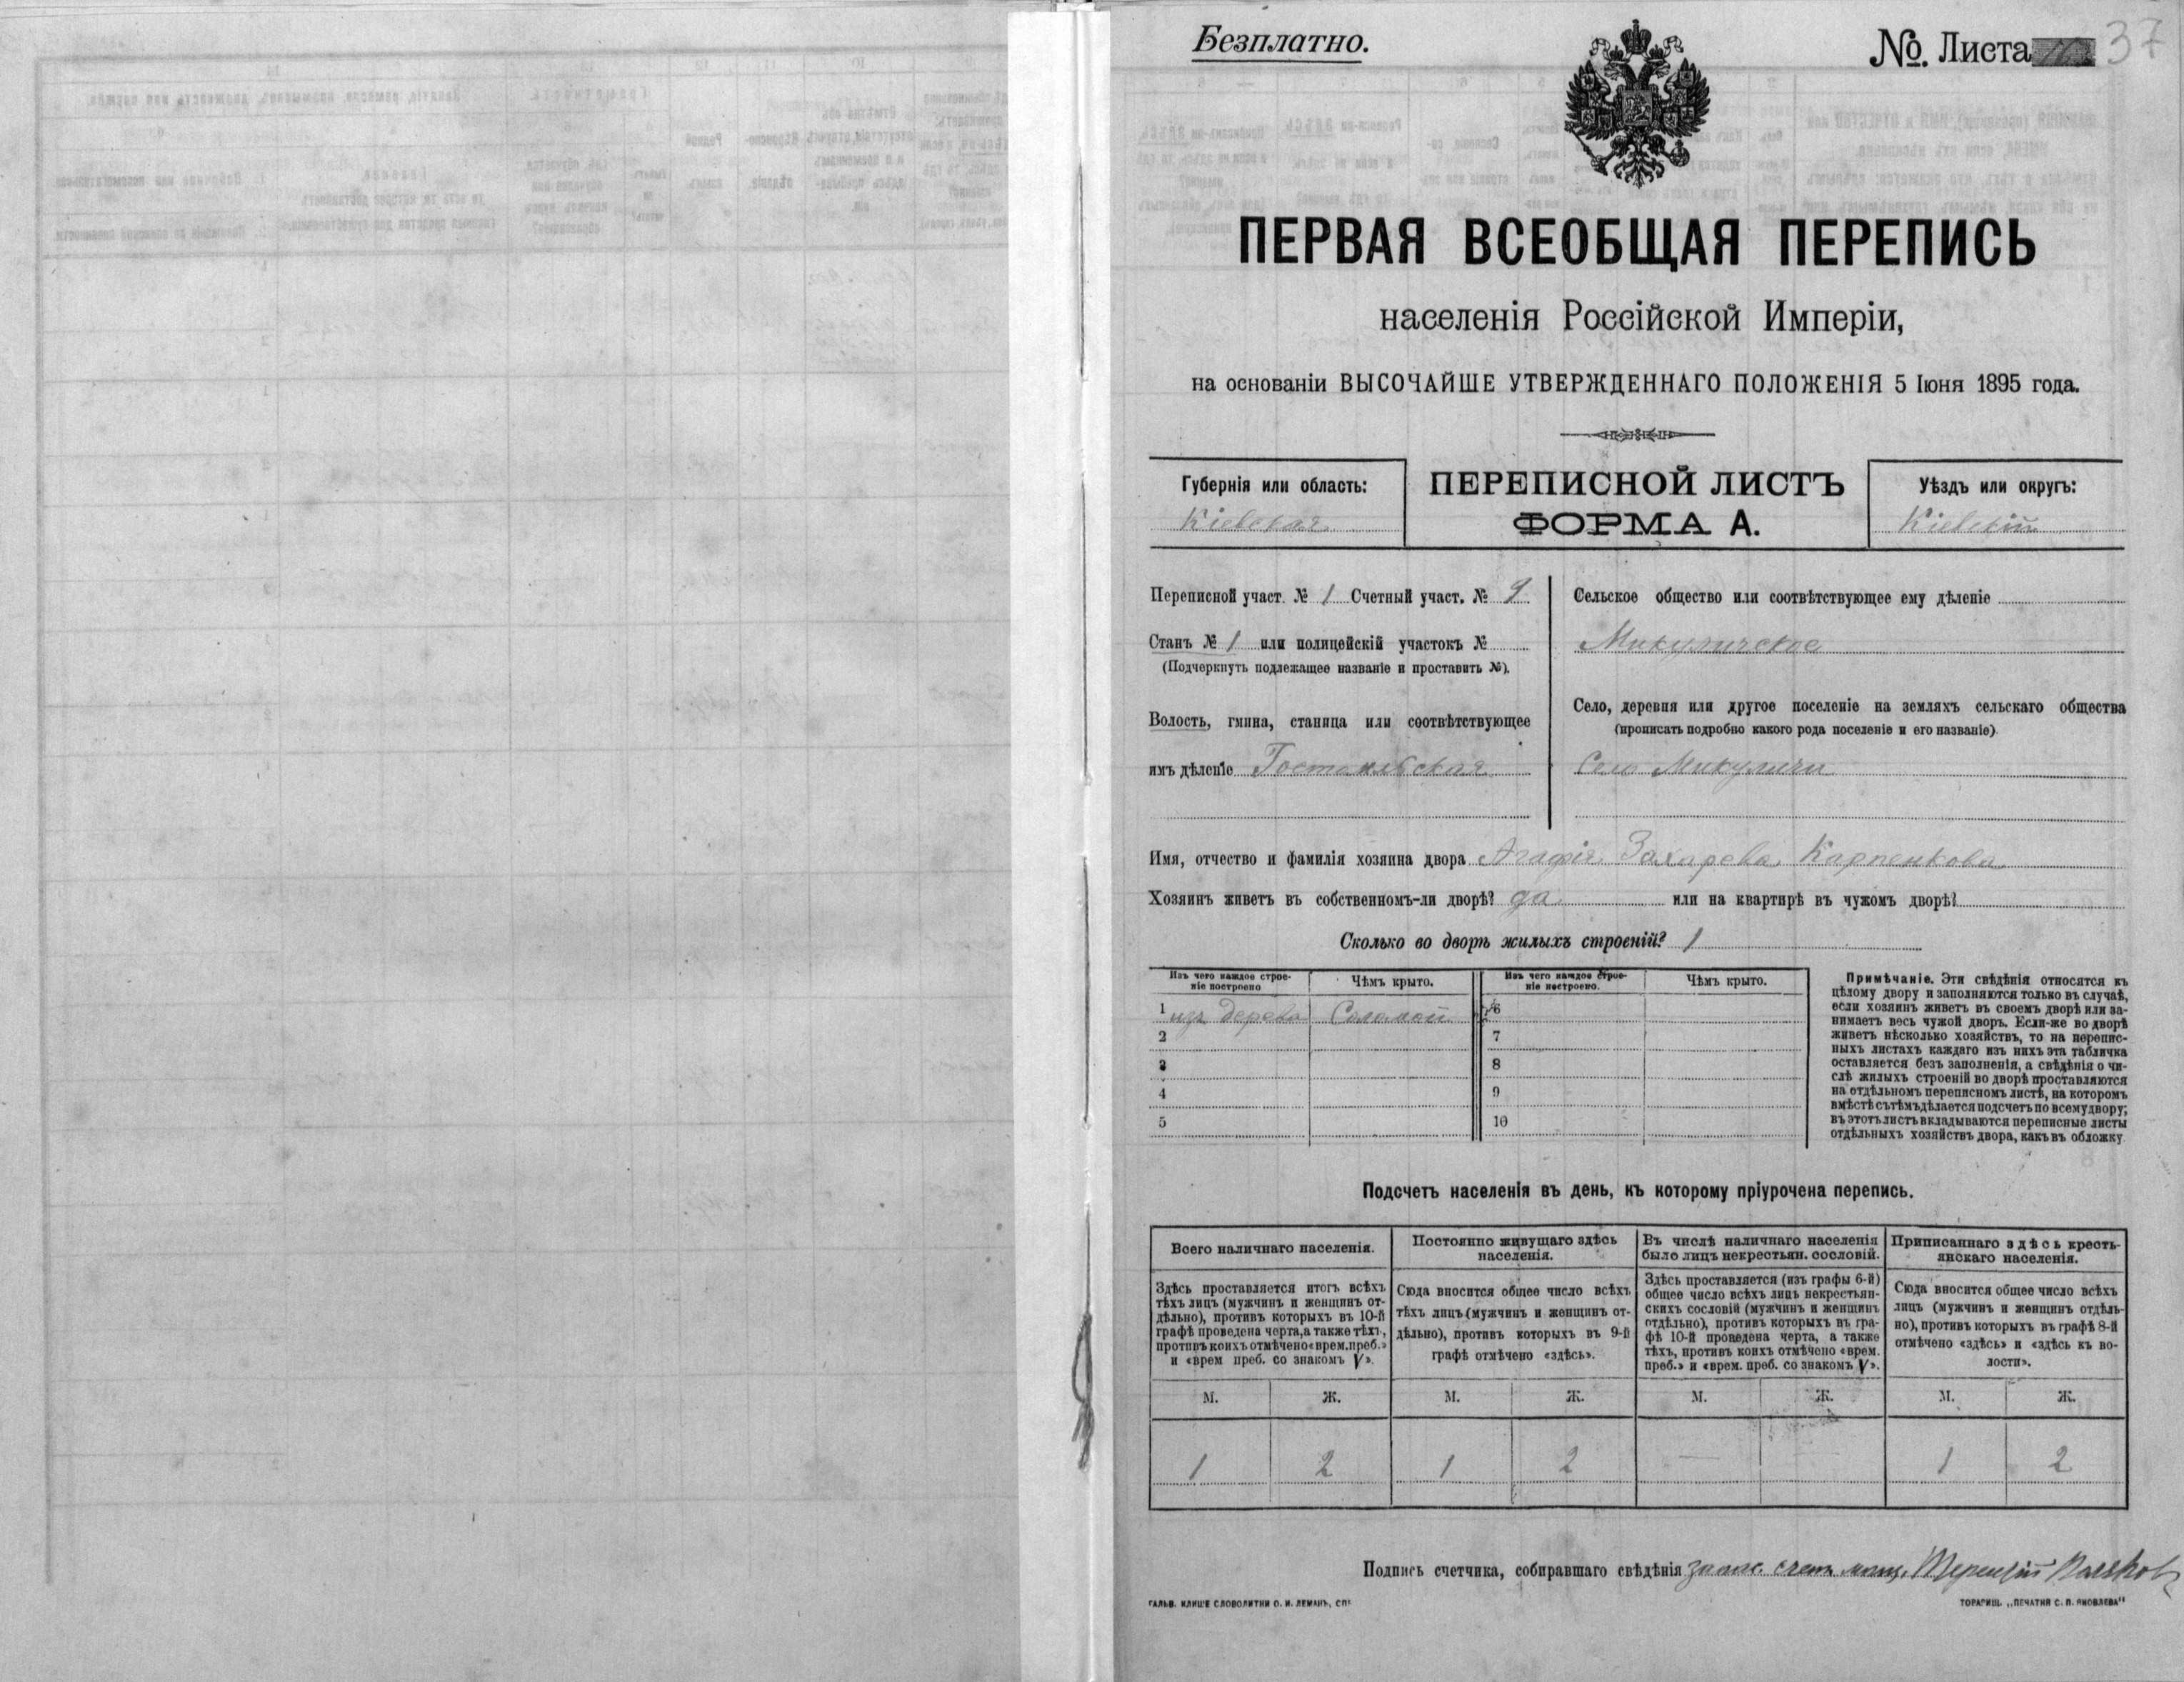 Безплатно.
№. Листа 37
ПЕРВАЯ ВСЕОБЩАЯ ПЕРЕПИСЬ
населенія Россійской Имперіи,
на основаніи ВЫСОЧАЙШЕ УТВЕРЖДЕННАГО ПОЛОЖЕНІЯ 5 Іюня 1895 года.
Губернія или область:
Кіевская
ПЕРЕПИСНОЙ ЛИСТЪ
ФОРМА А.
Уѣздъ или округъ:
Кіевскій
Переписной участ. № 1 Счетный участ. № 9
Станъ № 1 или полицейскій участокъ №
(Подчеркнуть подлежащее названіе и проставить №).
Волость, гмина, станица или соотвѣтствующее
имъ дѣленіе Гостомльская
Сельское общество или соотвѣтствующее ему дѣленіе
Микуличское
Село, деревня или другое поселеніе на земляхъ сельскаго общества
(прописать подробно какого рода поселеніе и его названіе)
Село Микуличи
Имя, отчество и фамилія хозяина двора Агафія Захарова Карпенкова
Хозяинъ живетъ въ собственномъ-ли дворѣ? да или на квартирѣ въ чужомъ дворѣ?
Сколько во дворѣ жилыхъ строеній? 1
Изъ чего каждое строе-
ніе построено
Чѣмъ крыто.
Изъ чего каждое строе-
ніе построено.
Чѣмъ крыто.
1 изъ дерева Соломой 6
2 7
3 8
4 9
5 10
Примѣчаніе. Эти свѣдѣнія относятся къ
цѣлому двору и заполняются только въ случаѣ,
если хозяинъ живетъ въ своемъ дворѣ или за-
нимаетъ весь чужой дворъ. Если-же во дворѣ
живетъ нѣсколько хозяйствъ, то на перепис-
ныхъ листахъ каждаго изъ нихъ эта табличка
оставляется безъ заполненія, а свѣдѣнія о чи-
слѣ жилыхъ строеній во дворѣ проставляются
на отдѣльномъ переписномъ листѣ, на которомъ
вмѣстѣ съ тѣмъ дѣлается подсчетъ по всему двору;
въ этотъ листъ вкладываются переписные листы
отдѣльныхъ хозяйствъ двора, какъ въ обложку
Подсчетъ населенія въ день, къ которому пріурочена перепись.
Всего наличнаго населенія.
Здѣсь проставляется итогъ всѣхъ
тѣхъ лицъ (мужчинъ и женщинъ от-
дѣльно), противъ которыхъ въ 10-й
графѣ проведена черта, а также тѣхъ,
противъ коихъ отмѣчено «врем. преб.»
и «врем преб. со знакомъ V».
Постоянно живущаго здѣсь
населенія.
Сюда вносится общее число всѣхъ
тѣхъ лицъ (мужчинъ и женщинъ от-
дѣльно), противъ которыхъ въ 9-й
графѣ отмѣчено «здѣсь».
Въ числѣ наличнаго населенія
было лицъ некрестьян. сословій.
Здѣсь проставляется (изъ графы 6-й)
общее число всѣхъ лицъ некрестьян-
скихъ сословій (мужчинъ и женщинъ
отдѣльно), противъ которыхъ въ гра-
фѣ 10-й проведена черта, а также
тѣхъ, противъ коихъ отмѣчено «врем.
преб.» и «врем. преб. со знакомъ V».
Приписаннаго здѣсь кресть-
янскаго населенія.
Сюда вносится общее число всѣхъ
лицъ (мужчинъ и женщинъ отдѣль-
но), противъ которыхъ въ графѣ 8-й
отмѣчено «здѣсь» и «здѣсь къ во-
лости».
М. Ж. М. Ж. М. Ж. М. Ж.
1 2 1 2 — — 1 2
Подпись счетчика, собиравшаго свѣдѣнія
ГАЛЬВ. КЛИШЕ СЛОВОЛИТНИ О. И. ЛЕМАНЪ, СПБ
ТОВАРИЩ. „ПЕЧАТНЯ С. П. ЯКОВЛЕВА"